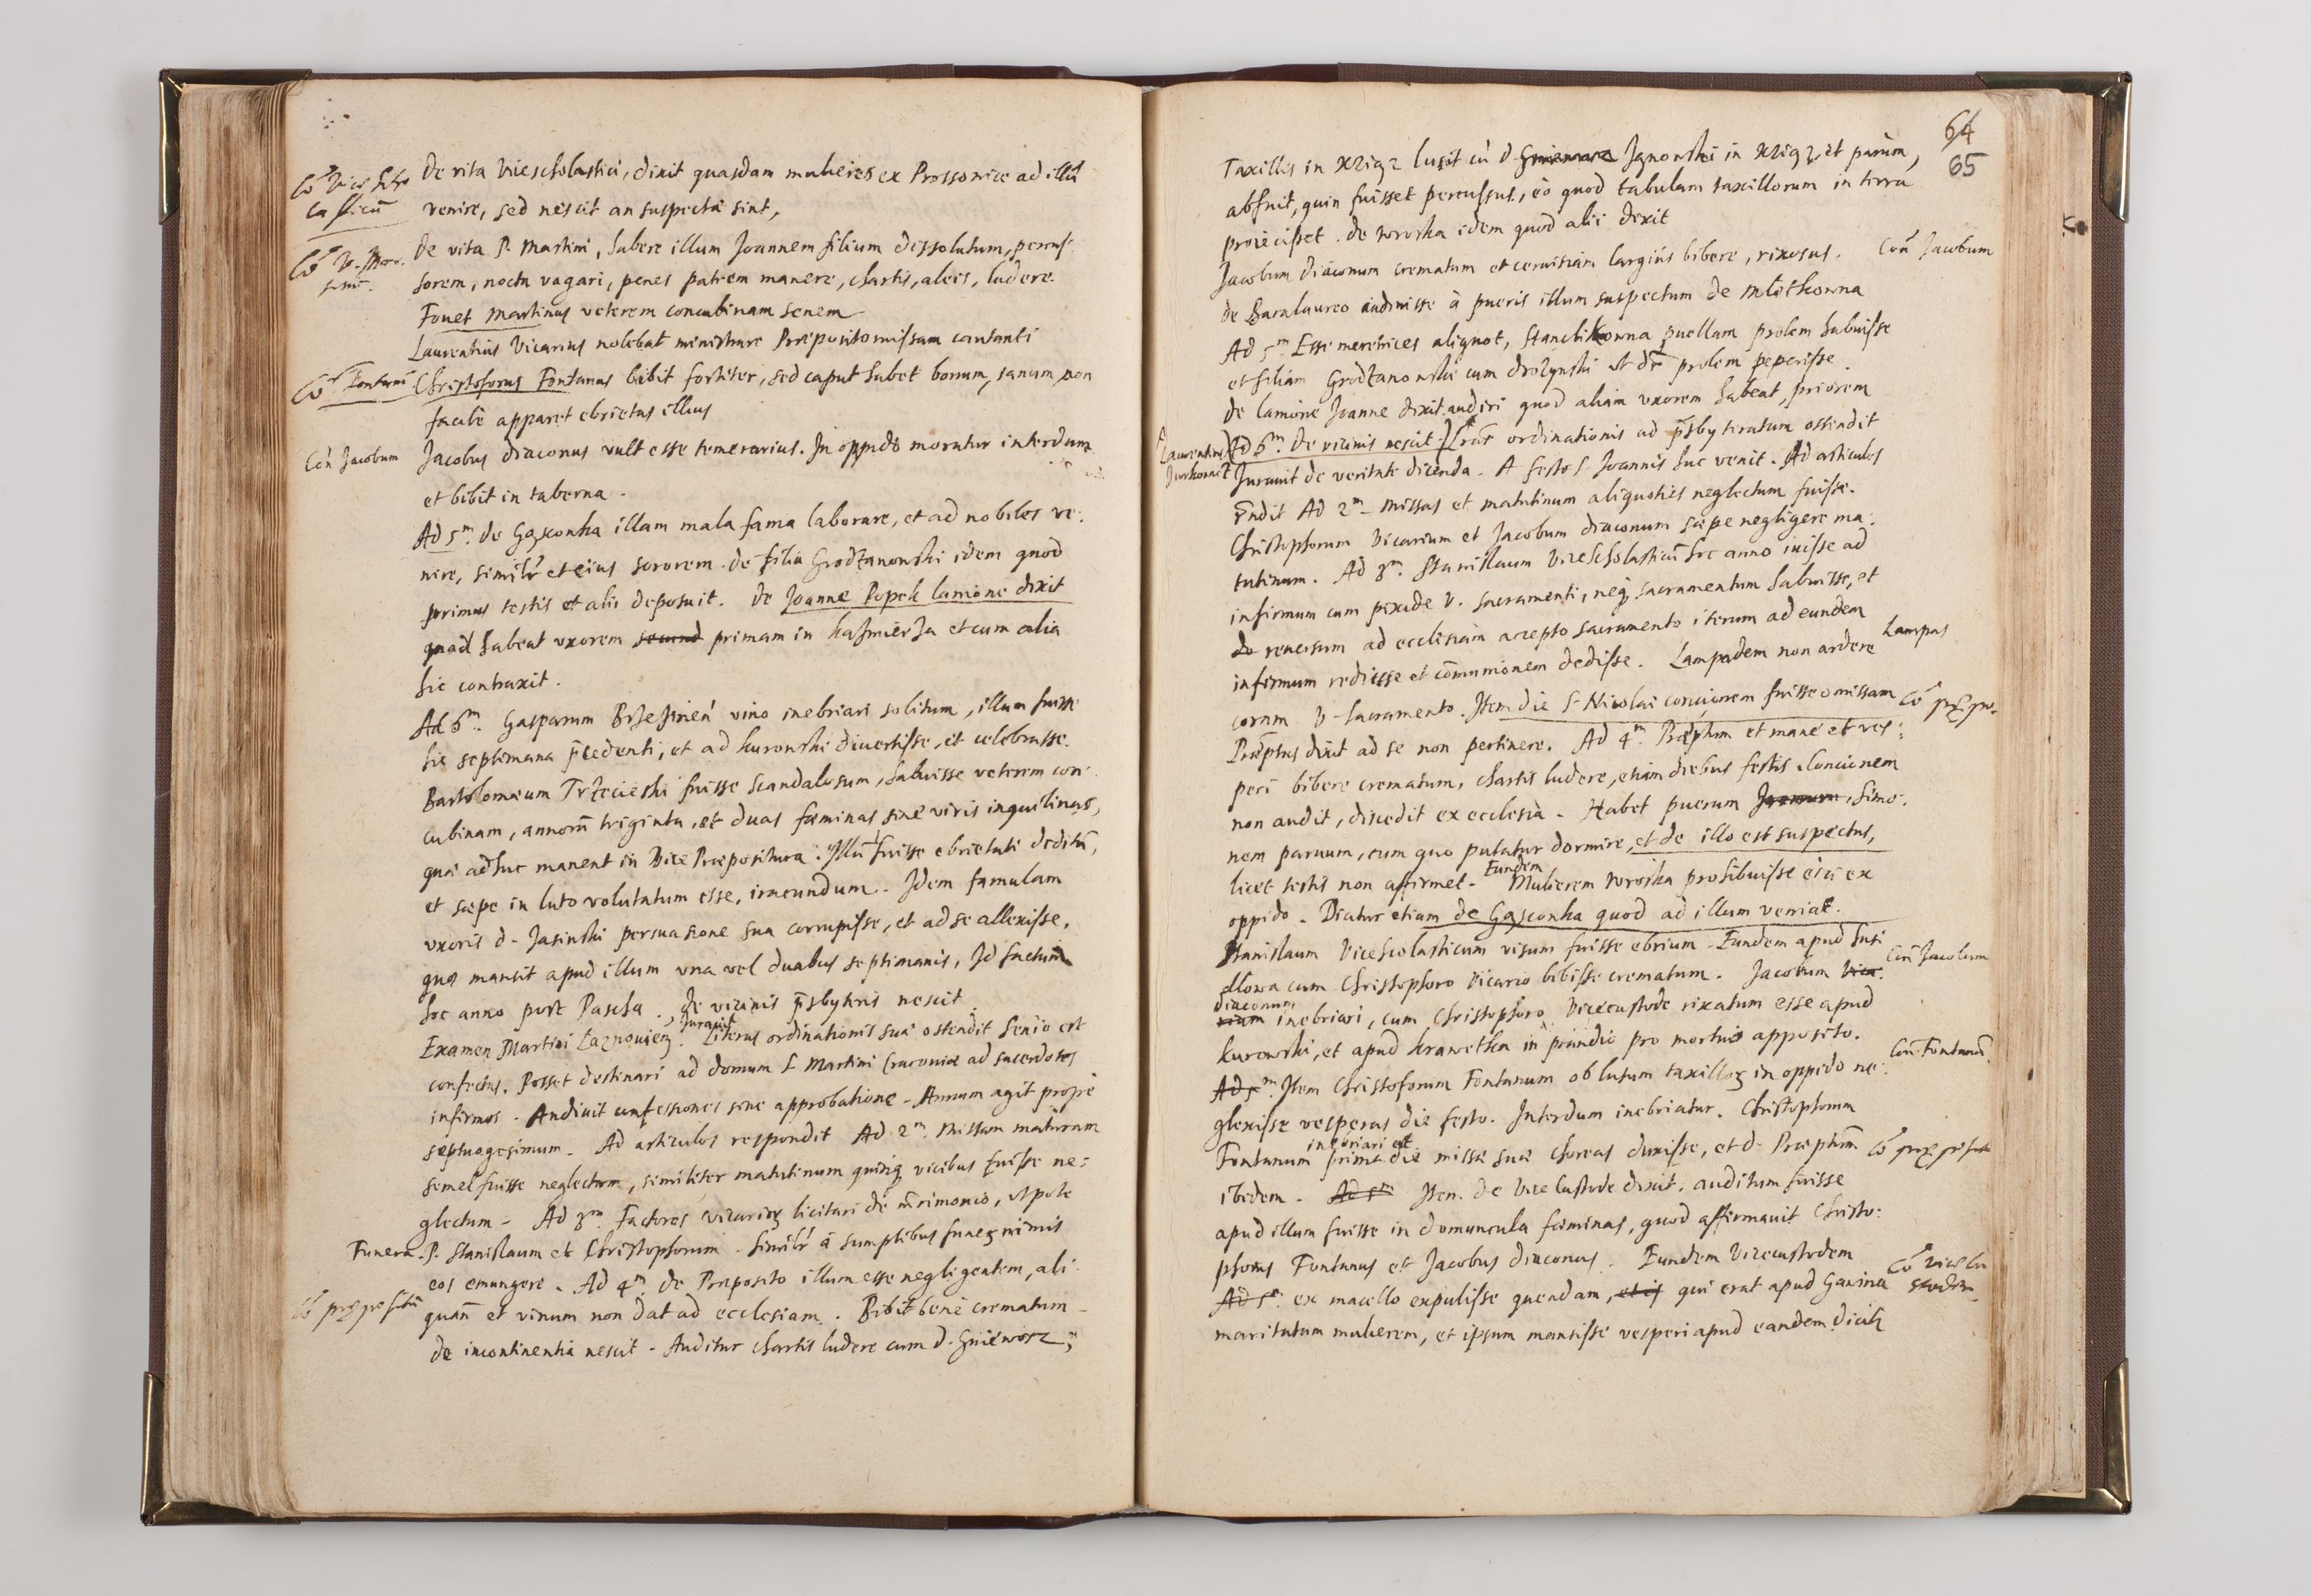 Cō Vice Scho
lasticū
De vita Vicescholastici, dixit quasdam mulieres ex Prossovice ad illū
venire, sed nescit an suspectæ sint,
Cō P. Mar-
tinū.
De vita P. Martini, habere illum Joannem filium dissolutum, percus-
sorem, noctu vagari, penes patrem manere, chartis, aleis, ludere.
Fovet Martinus veterem concubinam senem
Laurentius Vicarius nolebat ministrare Præposito missam cantanti
Cō Fontanū
Christoforus Fontanus bibit fortiter, sed caput habet bonum, sanum, non
facile apparet ebrietas illius
Con Jacobum
Jacobus diaconus vult esse temerarius. In oppido moratur interdum
et bibit in taberna.
Ad 5m. de Gąskonka illam mala fama laborare, et ad nobiles ve-
nire, similr et eius sororem. de filia Grodzanowski idem quod
primus testis et alii deposuit. De Joanne Popek lanione dixit
quod habeat uxorem secund primam in Kasmierza et cum alia
hic contraxit.
Ad 6m. Gasparum Brzezinen vino inebriari solitum, illum fuisse
hic septimana pcedenti, et ad Kurowski divertisse, et celebrasse.
Bartolomæum Trzecieski fuisse scandalosum, habuisse veterem con-
cubinam, annorū triginta, et duas fæminas sine viris inquilinas,
quæ adhuc manent in Vice Præpositura. Illū fuisse ebrietati deditū,
et sæpe in luto volutatum esse, iracundum. Idem famulam
uxoris d. Jasinski persuasione sua corrupisse, et ad se allexisse,
quæ mansit apud illum una vel duabus septimanis, Id factum
hoc anno post Pascha. de vicinis psbyteris nescit
Juravit
Examen Martini Laznowien. Literas ordinationis suæ ostendit senio est
confectus. Posset destinari ad domum S. Martini Cracoviæ ad sacerdotes
infirmos. Audivit confessiones sine approbatione. Annum agit prope
septuagesimum. Ad articulos respondit Ad 2m. Missam maturam
semel fuisse neglectam, similiter matutinum quinq vicibus fuisse ne-
glectum. Ad 3m. Factores vicarios licitari de mrimonio, utpote
Funera.
P. Stanislaum et Christophorum. Similr a sumptibus funer nimis
eos emungere. Ad 4m. de Præposito illum esse negligentem, ali-
Cō præpositū
quan et vinum non dat ad ecclesiam. Bibit bene crematum
de incontinentia nescit. Auditur chartis ludere cum d. Gniewosz,
64
65
Taxillis in lusit cū d. Gniewosz Jgnowski in et parum,
abfuit, quin fuisset percussus, eo quod tabulam taxillorum in terra
proiecisset. de Wroska idem quod alii dixit
Jacobum diaconum crematum et cervisiam largius bibere, rixosus.
Con Jacobum
de Bacalaureo audivisse à pueris illum suspectum de Mlotkowna
Ad 5m. Esse meretrices aliquot, Stanclikowna puellam prolem habuisse
et filiam Grodzanowski cum Drozynski ut dr prolem peperisse.
de lanione Joanne dixit audiri quod aliam uxorem habeat, priorem
Laurentius
Ad 6m. De vicinis nescit. Lras ordinationis ad psbyteratum ostendit
Juravit de veritate dicenda. A festo S. Joannis huc venit. Ad articulos
rndit Ad 2m. Missas et matutinum aliquoties neglectum fuisse.
Christophorum Vicarium et Jacobum diaconum sæpe negligere ma-
tutinum. Ad 3m. Stanislaum Vicescholasticū hoc anno ivisse ad
infirmum cum pixide V. sacramenti, neq sacramentum habuisse, et
do reversum ad ecclesiam accepto sacramento iterum ad eundem
infirmum rediisse et cōmunionem dedisse. Lampadem non ardere
Lampas
coram V. Sacramento. Item die S. Nicolai concionem fuisse omissam
Cō præpo-
Præptus dixit ad se non pertinere. Ad 4m. Præptum et mane et ves-
peri bibere crematum, chartis ludere, etiam diebus festis. Concionem
non audit, discedit ex ecclesia. Habet puerum Joannem, Simo-
nem parvum, cum quo putatur dormire, et de illo est suspectus,
licet testis non affirmet. Eundem Mulierem Wroska prohibuisse eici ex
oppido. Dicitur etiam de Gąskonka quod ad illum veniat.
Stanislaum Vicescolasticum visum fuisse ebrium. Eundem apud Susi
Con Jacobum
dlowa cum Christophoro vicario bibisse crematum. Jacobum Vica-
diaconum
rium inebriari, cum Christophoro Vicecustode rixatum esse apud
Kurowski, et apud Krawetka in prandio pro mortuis apposito.
Con Fontanū
Ad 5m. Item Christoforum Fontanum ob lusum taxillor in oppido ne-
glexisse vesperas die festo. Interdum inebriatur. Christophorum
inebriari et
Fontanum prima die missæ suæ choreas duxisse, et d. Præptum
Cō præpositū
ibidem. Ad 5m Item. de Vice Custode dixit, auditum fuisse
apud illum fuisse in domuncula fæminas, quod affirmavit Christo-
phorus Fontanus et Jacobus diaconus. Eundem Vicecustodem
Cō Vice Cu
stodem
Ad 5m. ex macello expulisse quendam, et is qui erat apud Gavina
maritatum mulierem, et ipsum mansisse vesperi apud eandem. dicit